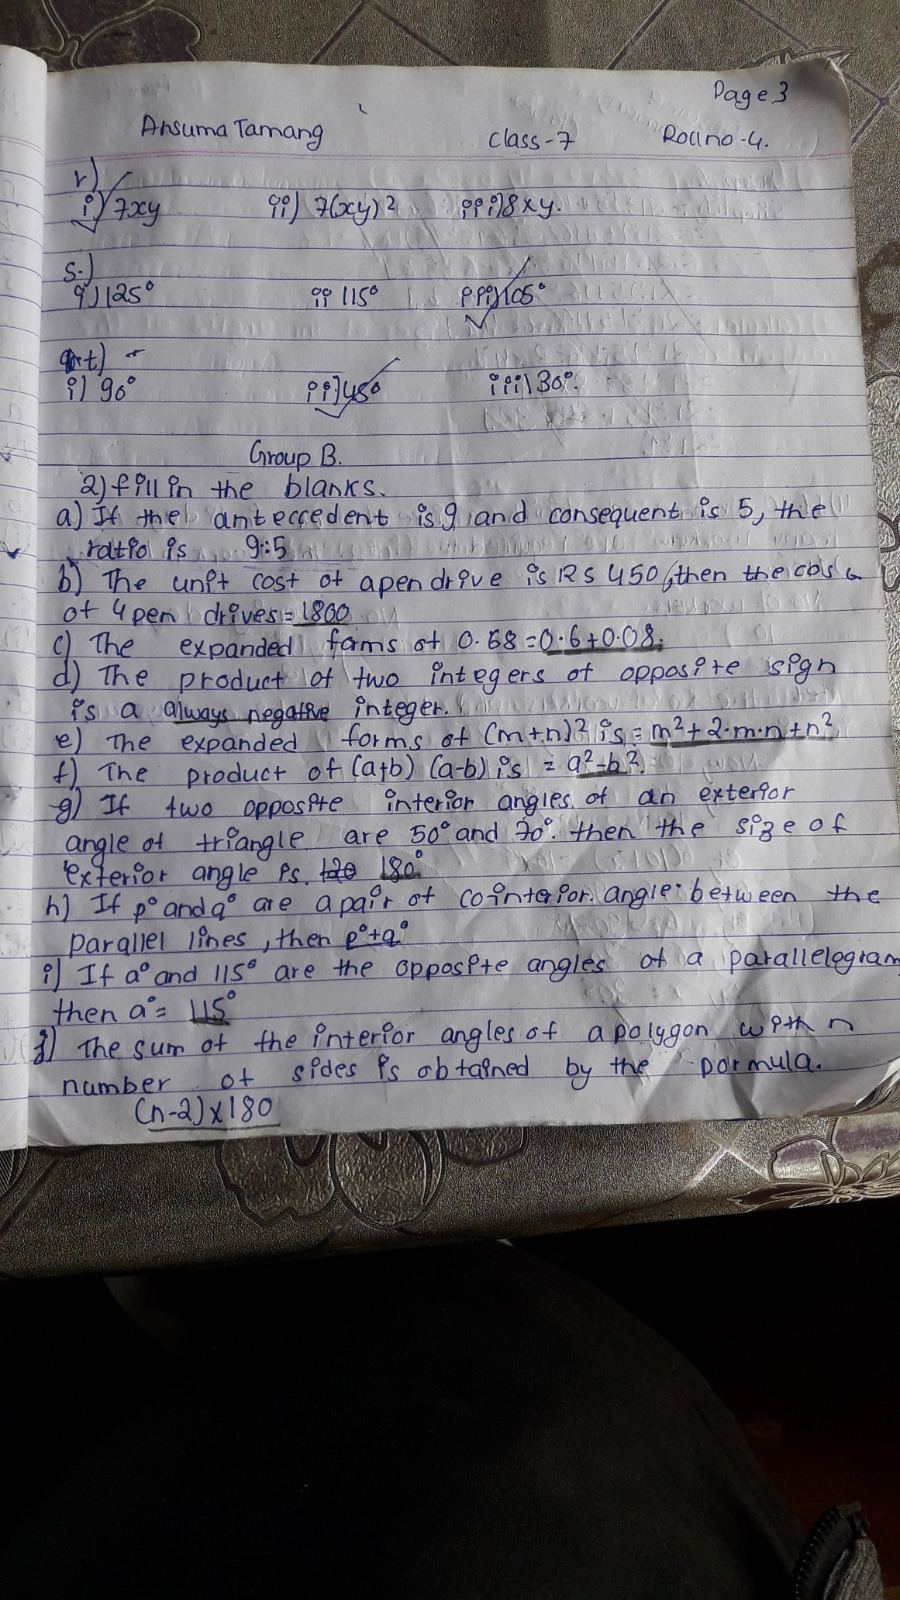 Page 3
Ansuma Tamang Class-7 Roll no-4.
r)
i) 7xy ii) 7(xy)2 iii) 8xy.
s.)
i) 125° ii 115° iii) 105°
t)
i) 90° ii) 45° iii) 30°.
Group B.
2) fill in the blanks.
a) If the anteccedent is 9 and consequent is 5, the
ratio is 9:5
b) The unit cost of a pen drive is RS 450, then the cost
of 4 pen drives = 1800
c) The expanded forms of 0.68 = 0.6+0.08.
d) The product of two integers of opposite sign
is a always negative integer.
e) The expanded forms of (m+n)² is = m²+2.m.n+n²
f) The product of (a+b) (a-b) is = a²-b².
g) If two opposite interior angles of an exterior
angle of triangle are 50° and 70°. then the size of
exterior angle is. 120 180°
h) If p° and q° are a pair of cointerior. angle. between the
parallel lines, then p°+q°
i) If a° and 115° are the opposite angles of a parallelegram
then a° = 115°
j) The sum of the interior angles of a polygon with n
number of sides is obtained by the pormula.
(n-2)x180